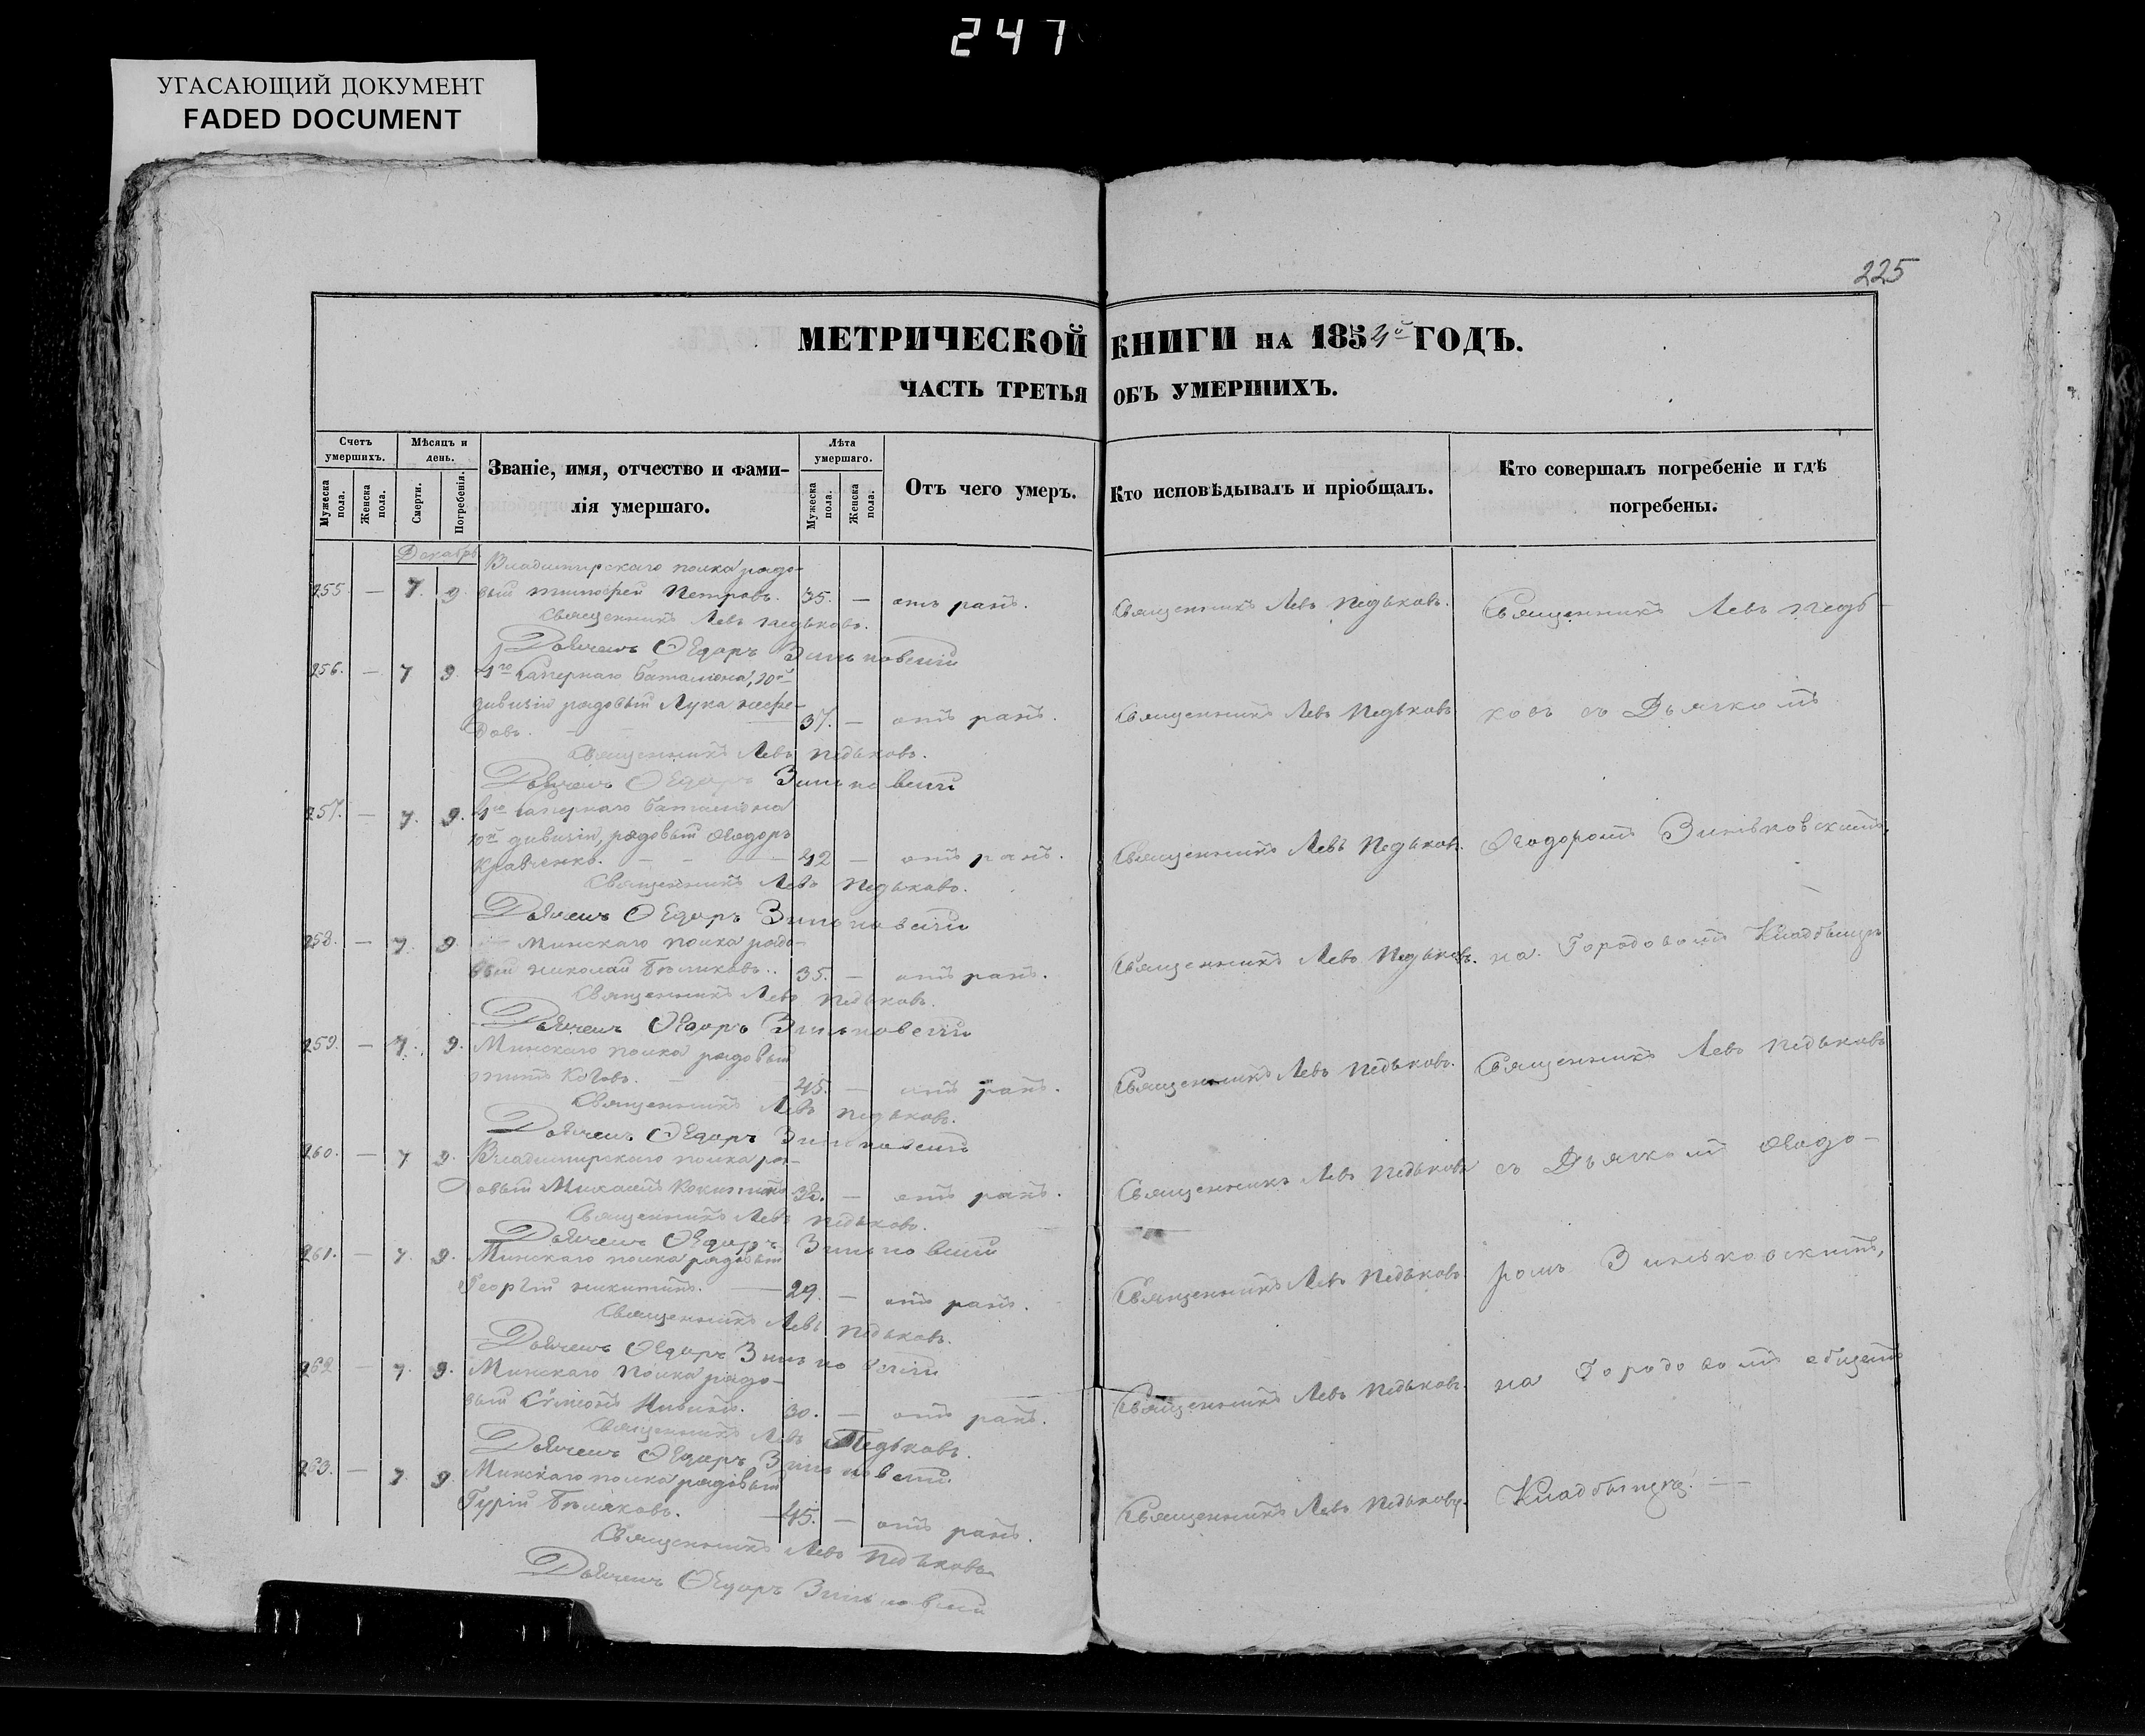 247
УГАСАЮЩИЙ ДОКУМЕНТ
FADED DOCUMENT
225
МЕТРИЧЕСКОЙ КНИГИ НА 1854й ГОДЪ.
ЧАСТЬ ТРЕТЬЯ ОБЪ УМЕРШИХЪ.
Счетъ умершихъ.
Мужеска пола.
Женска пола.
Мѣсяцъ и день.
Смерти.
Погребенія.
Званіе, имя, отчество и фами-
лія умершаго.
Лѣта умершаго.
Мужеска пола.
Женска пола.
Отъ чего умеръ.
Кто исповѣдывалъ и пріобщалъ.
Кто совершалъ погребеніе и гдѣ
погребены.
Декабрь
Владимирскаго полка рядо-
255. — 7. 9. вый Тимофей Петровъ. 35. — отъ ранъ. Священникъ Левъ Педьковъ. Священникъ Левъ Педь-
Священникъ Левъ Педьковъ.
Дьячекъ Ѳедоръ Зиньковскій
256. — 7 9. 4го Сапернаго баталіона, 10й
дивизіи рядовый Лука
довъ. 37. — отъ ранъ. Священникъ Левъ Педьковъ ковъ съ Дьячкомъ
Священникъ Левъ Педьковъ.
Дьячекъ Ѳедоръ Зиньковскій
257. — 7. 9. 4го Сапернаго баталіона
10й дивизіи, рядовый Ѳеодоръ
Кравченко. 42 — отъ ранъ. Священникъ Левъ Педьковъ. Ѳеодоромъ Зиньковскимъ,
Священникъ Левъ Педьковъ.
Дьячекъ Ѳедоръ Зиньковскій
258. — 7. 9. Минскаго полка рядо-
вый Николай Бѣликовъ. 35. — отъ ранъ. Священникъ Левъ Педьковъ. на Городовомъ Кладбищѣ
Священникъ Левъ Педьковъ.
Дьячекъ Ѳедоръ Зиньковскій
259. — 7. 9. Минскаго полка рядовый
Титъ 45. — отъ ранъ. Священникъ Левъ Педьковъ. Священникъ Левъ Педьковъ
Священникъ Левъ Педьковъ.
Дьячекъ Ѳедоръ Зиньковскій
260. — 7 9. Владимирскаго полка ря-
довый 32. — отъ ранъ. Священникъ Левъ Педьковъ съ Дьячкомъ Ѳеодо-
Священникъ Левъ Педьковъ.
Дьячекъ Ѳедоръ Зиньковскій
261. — 7. 9. Минскаго полка рядовый
Георгій Никитинъ. 29. — отъ ранъ. Священникъ Левъ Педьковъ ромъ Зиньковскимъ,
Священникъ Левъ Педьковъ.
Дьячекъ Ѳедоръ Зиньковскій
262 — 7. 9. Минскаго полка рядо-
вый 30. — отъ ранъ. Священникъ Левъ Педьковъ. на Городовомъ общемъ
Священникъ Левъ Педьковъ.
Дьячекъ Ѳедоръ Зиньковскій.
263. — 7. 9. Минскаго полка рядовый
Гурій Бѣляковъ. 45. — отъ ранъ. Священникъ Левъ Педьковъ. Кладбищѣ. —
Священникъ Левъ Педьковъ
Дьячекъ Ѳедоръ Зиньковскій